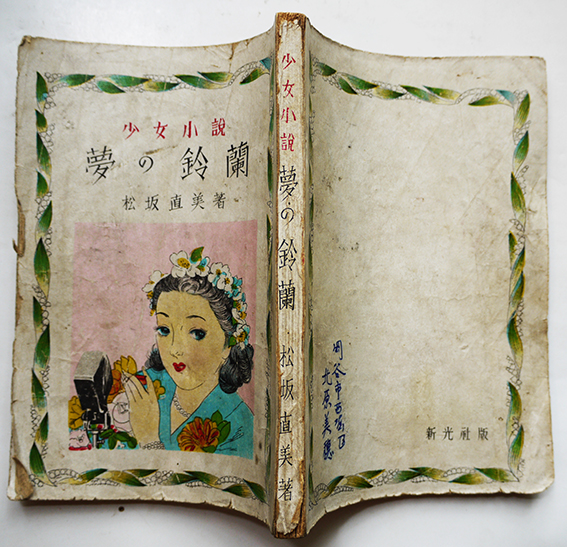 少女小説
夢の鈴蘭
松坂直美著
少女小説 夢の鈴蘭 松坂直美著
岡谷市
新光社版